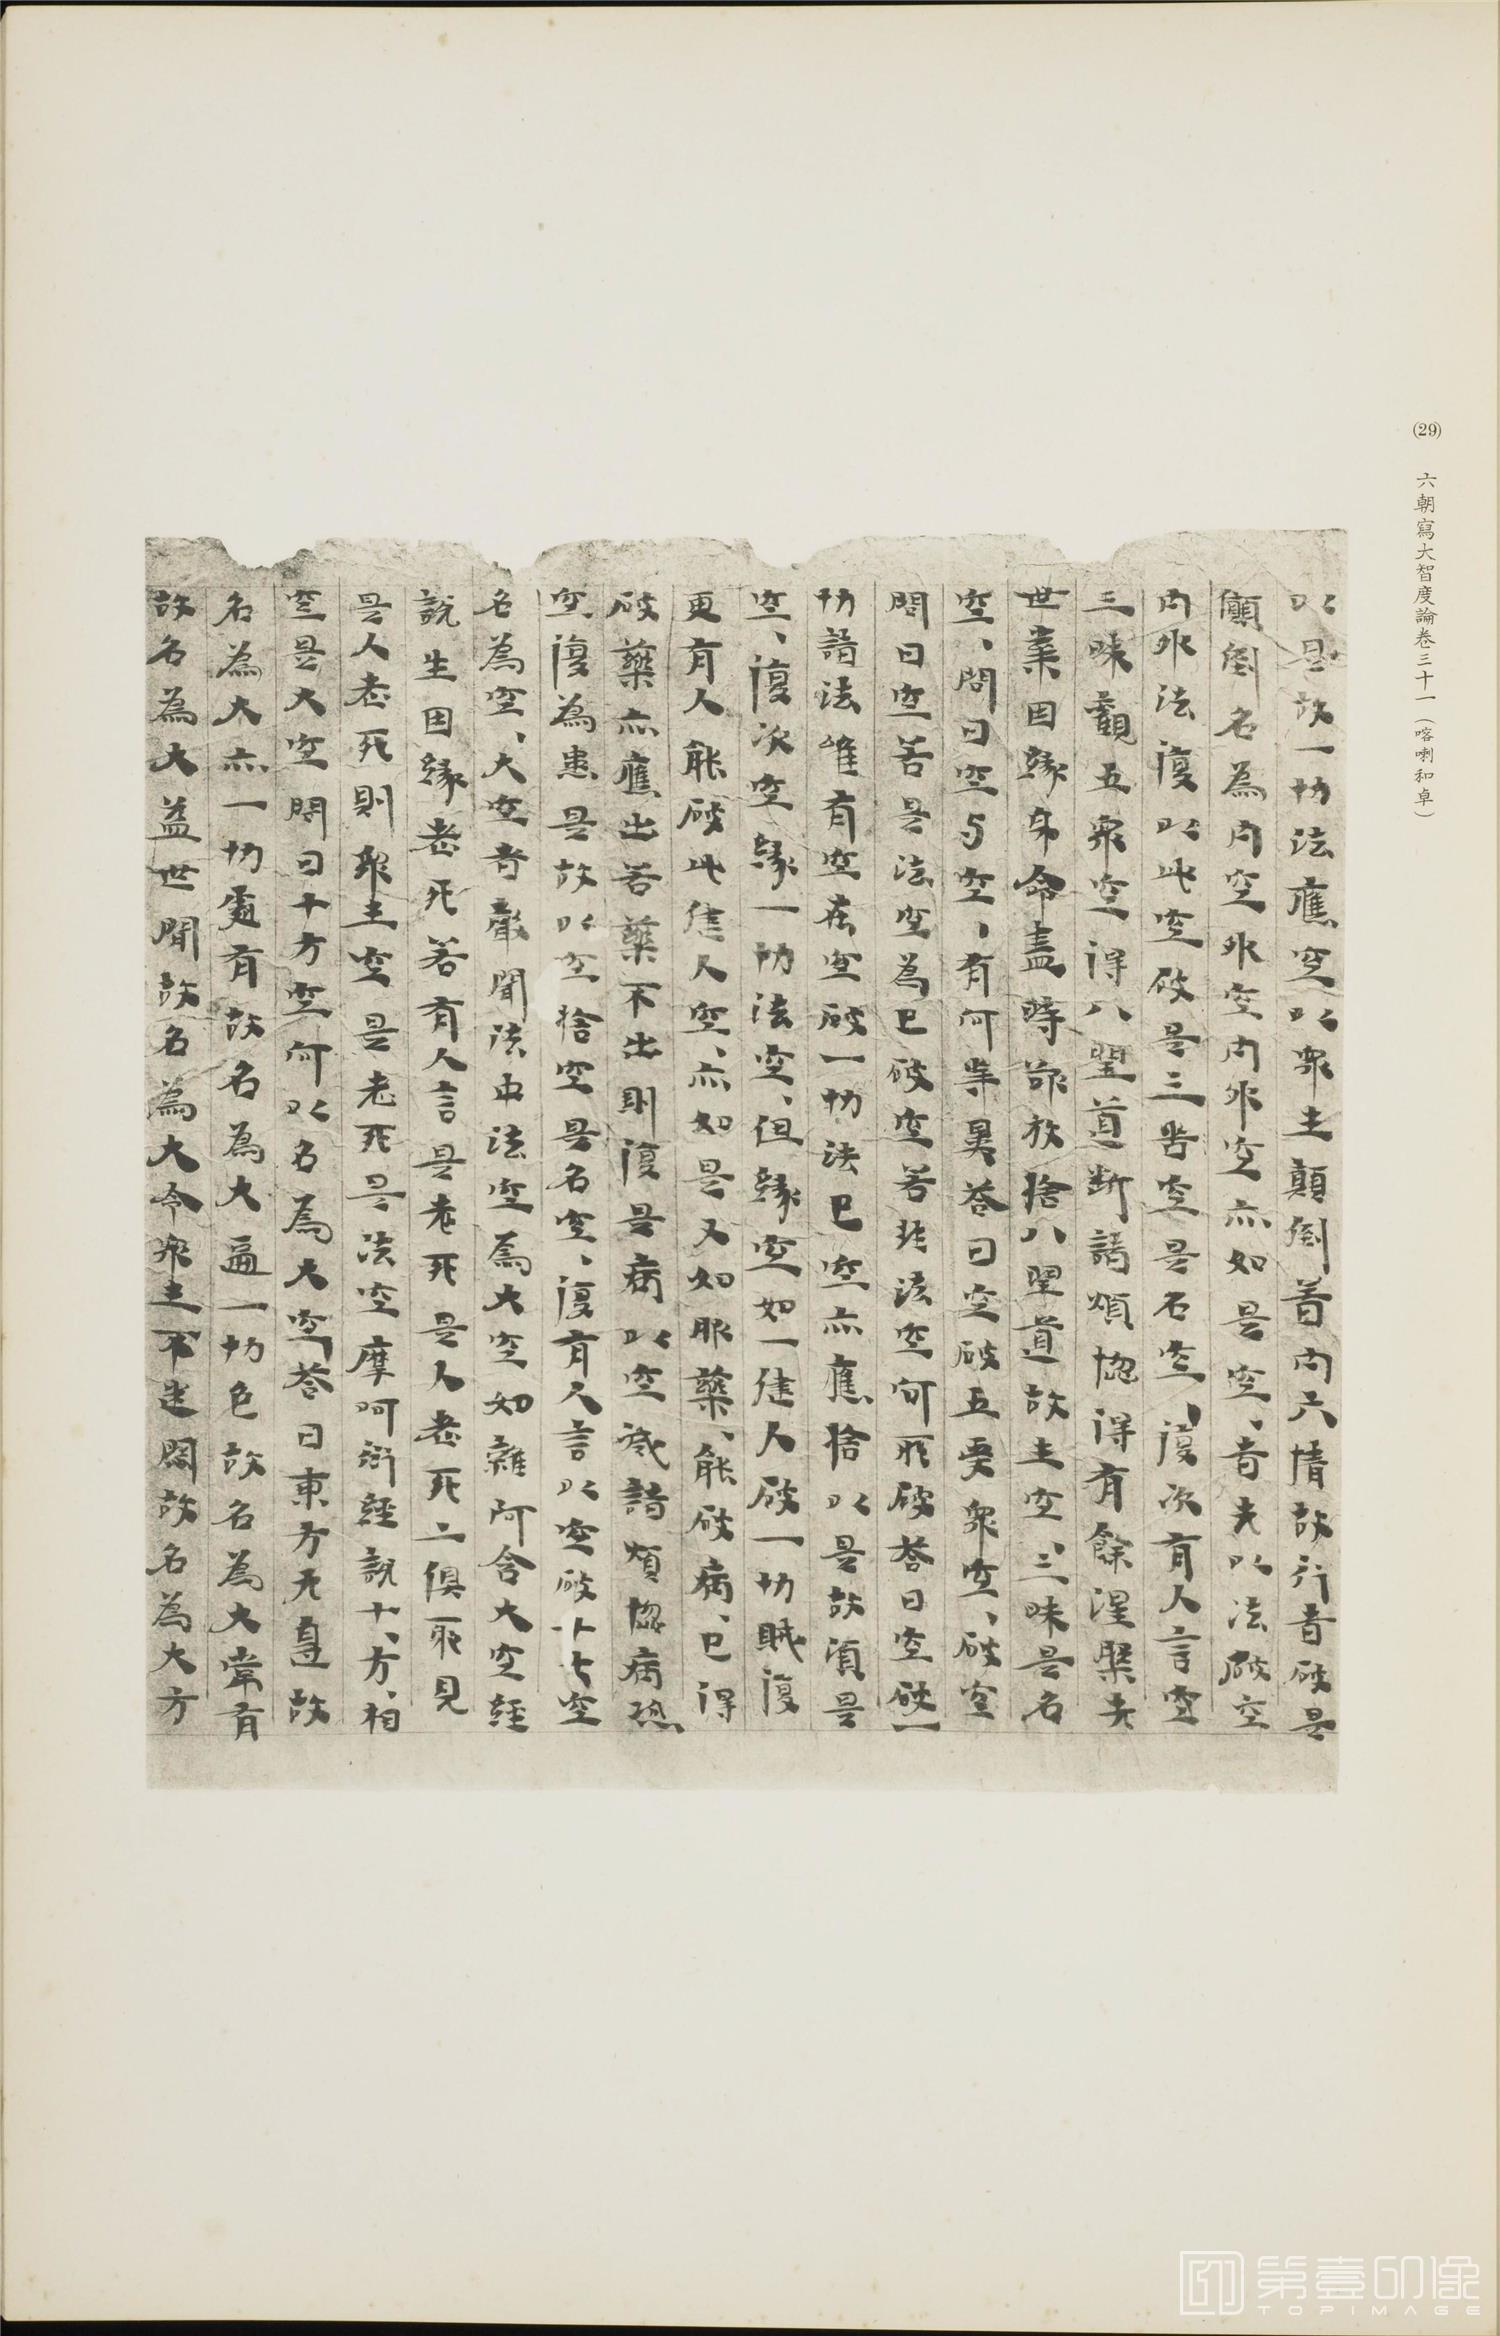 (29) 六朝寫大智度論卷三十一（喀喇和卓）
以是故一切法應空以衆生顛倒著內六情故行者破是
顛倒名為內空外空內外空亦如是空、者先以法破空
內外法復以此空破是三空是名空、復次有人言空
三昧觀五衆空得八聖道断諸煩惱得有餘涅槃先
世業因緣身命盡時欲放捨八聖道故生空、三昧是名
空、問曰空与空、有何等異荅曰空破五受衆空、破空
問曰空若是法空為已破空若非法空何所破荅曰空破一
切諸法唯有空在空破一切法已空亦應捨以是故湏是
空、復次空緣一切法空、但緣空如一健人破一切賊復
更有人能破此健人空、亦如是又如服藥、能破病、已得
破藥亦應出若藥不出則復是病以空滅諸煩惱病恐
空復為患是故以空捨空是名空、復有人言以空破十七空
名為空、大空者聲聞法中法空為大空如雜阿含大空經
說生因緣老死若有人言是老死是人老死二俱耶見
是人老死則衆生空是老死是法空摩呵衍經說十、方、相
空是大空問曰十方空何以名為大空荅曰東方无邊故
名為大亦一切處有故名為大遍一切色故名為大常有
故名為大益世間故名為大令衆生不迷悶故名為大方
第壹印像
TOPIMAGE